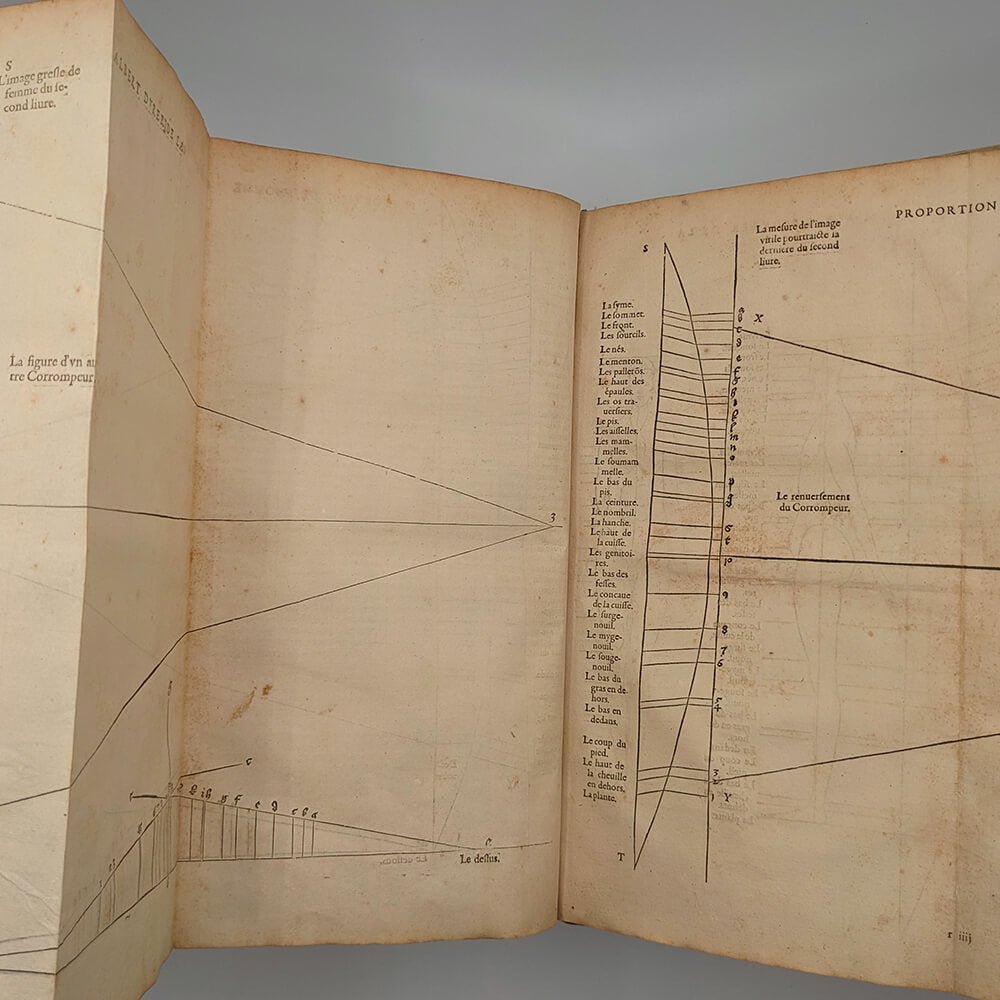 S
L'image gresle de
femme du se-
cond liure.
ALBERT DVRER DE LA
La figure d'vn au
tre Corrompeur.
3
c
g f e d c b a
Le dessus.
PROPORTION
La mesure de l'image
virile pourtraicte la
derniere du second
liure.
S
X
La syme.
Le sommet.
Le front.
Les sourcils.
Le nés.
Le menton.
Les pallerõs.
Le haut des
épaules.
Les os tra-
uersiers.
Le pis.
Les aisselles.
Les mam-
melles.
Le soumam
melle.
Le bas du
pis.
La ceinture.
Le nombril.
La hanche.
Le haut de
la cuisse.
Les genitoi-
res.
Le bas des
fesses.
Le concaue
de la cuisse.
Le surge-
nouil.
Le myge-
nouil.
Le souge-
nouil.
Le bas du
gras en de-
hors.
Le bas en
dedans.
Le coup du
pied.
Le haut de
la cheuille
en dehors.
La plante.
a
b
c
d
e
f
g
h
i
k
l
m
n
o
p
q
s
t
10
9
8
7
6
5
4
3
2
1
Y
T
Le renuersement
du Corrompeur.
r iiij